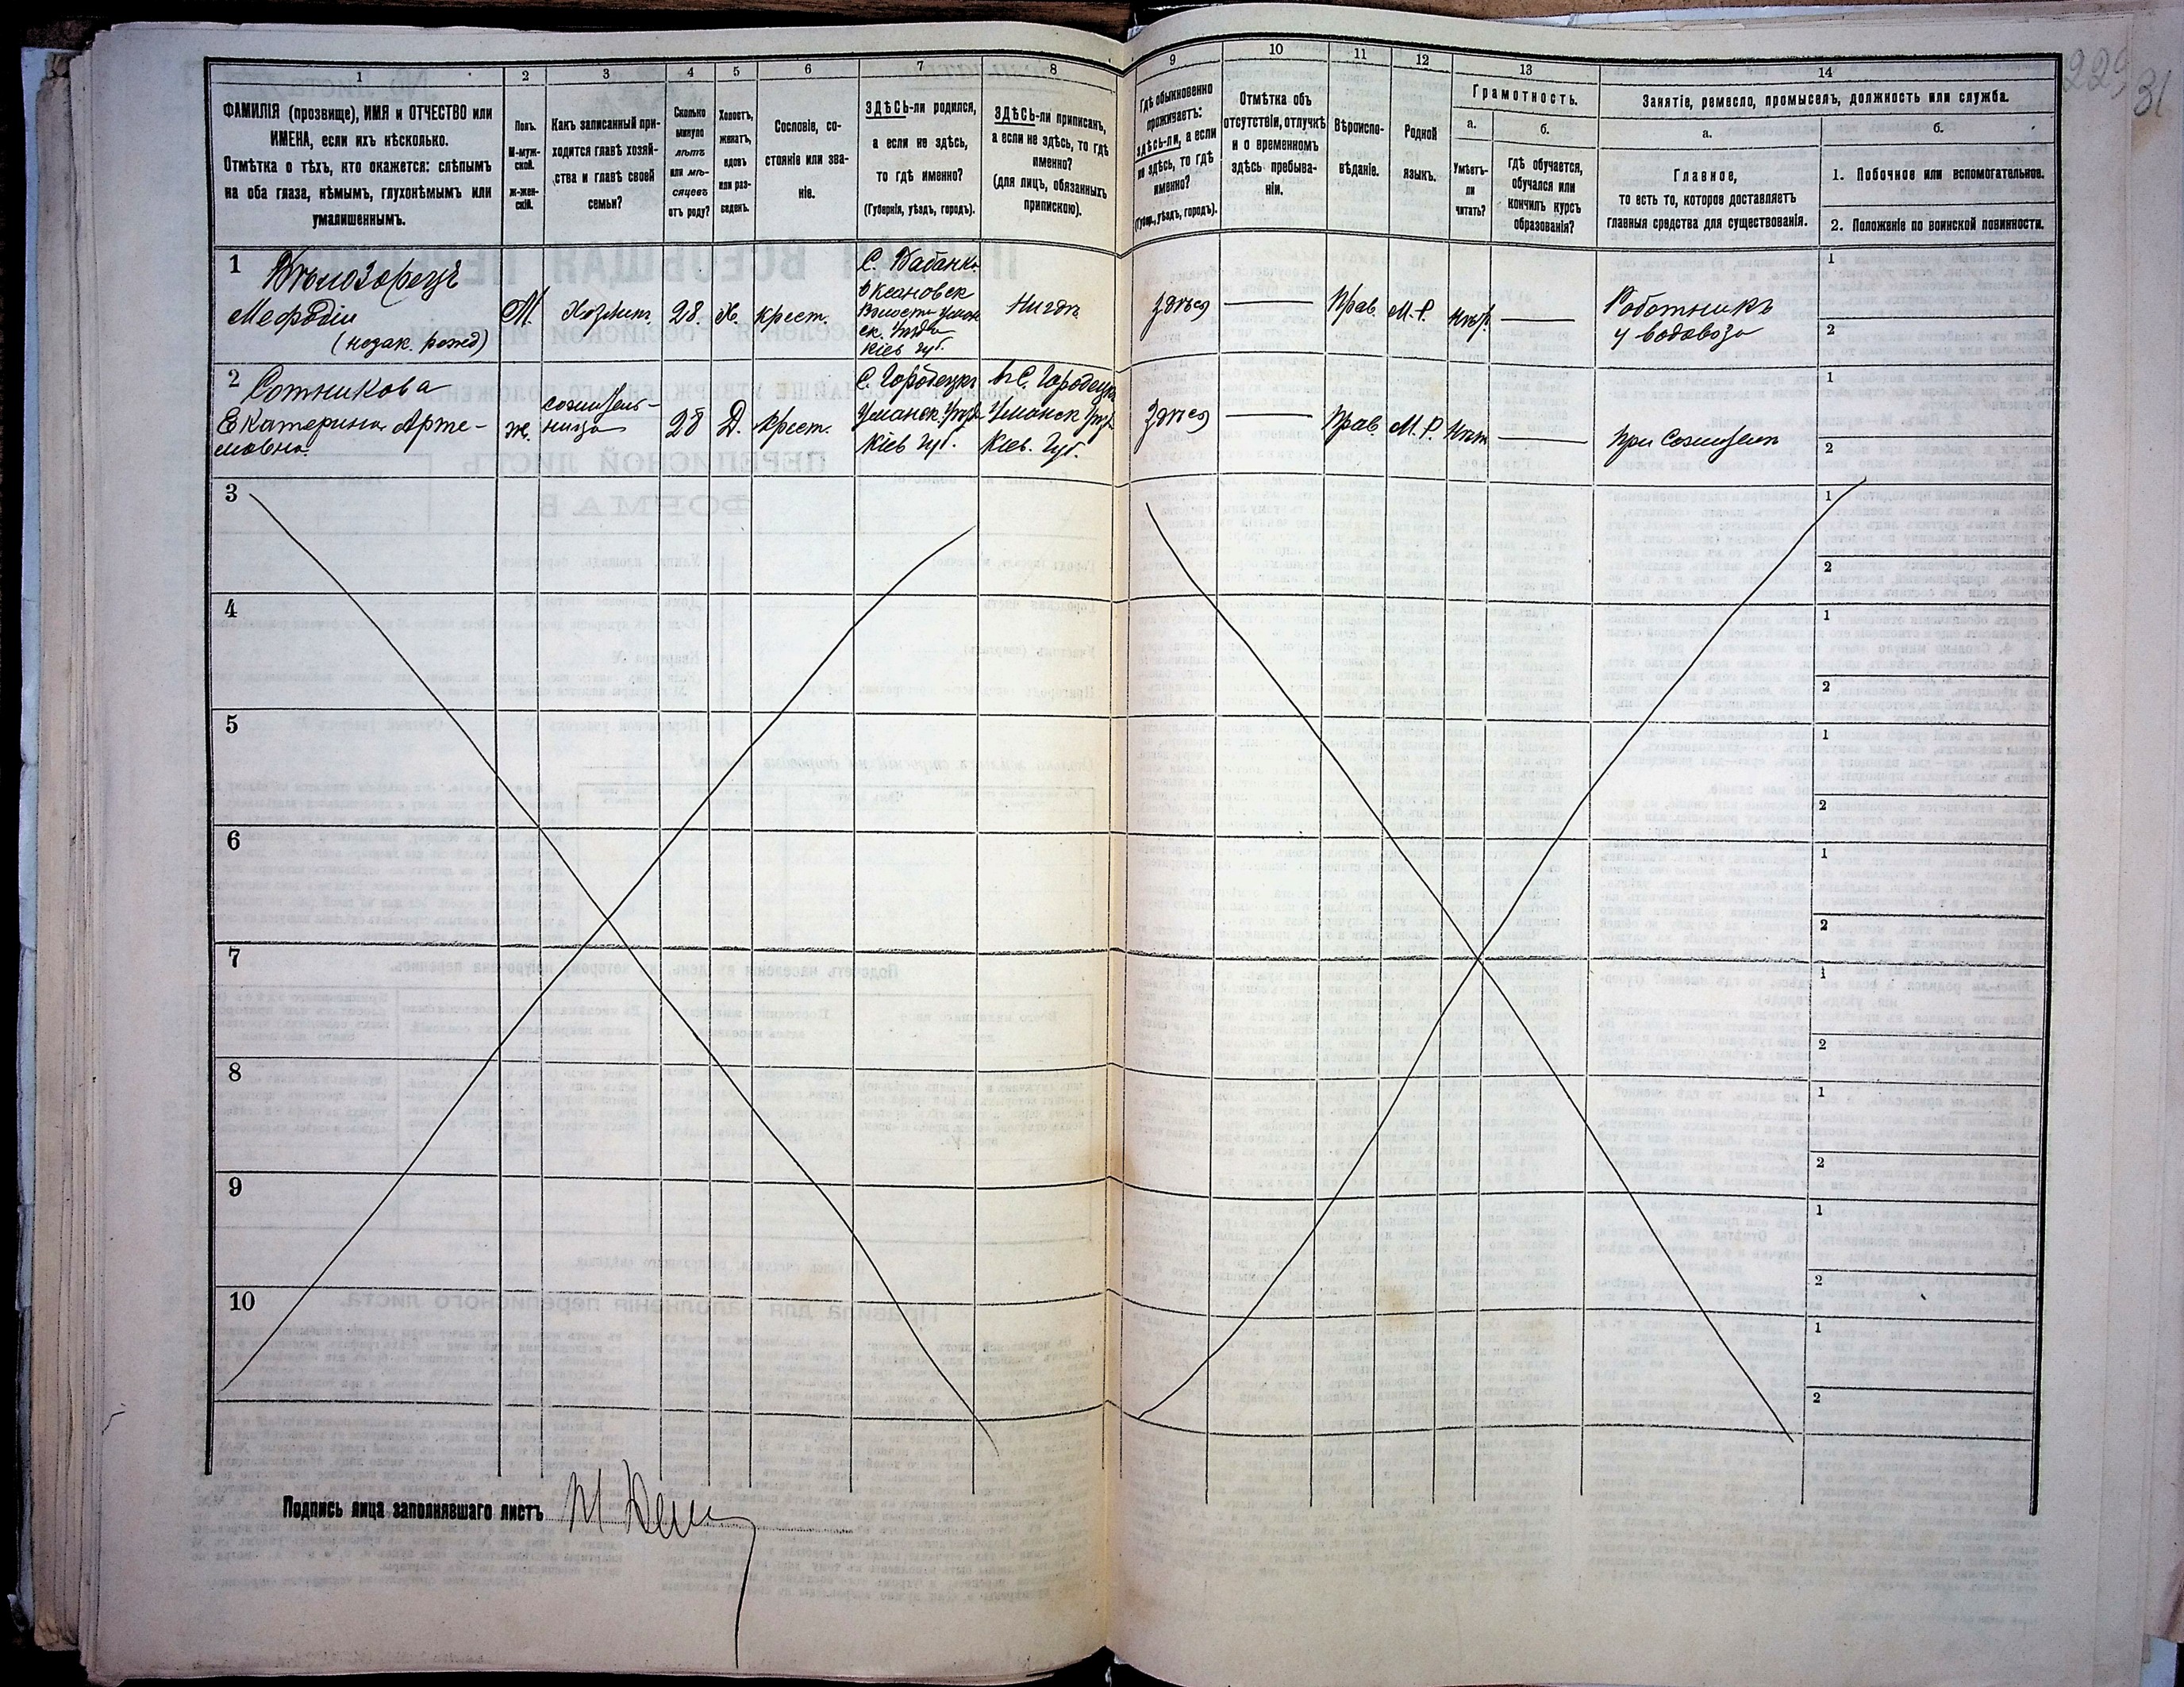 1
2
3
4
5
6
7
8
9
10
11
12
13
14
ФАМИЛІЯ (прозвище), ИМЯ и ОТЧЕСТВО или
ИМЕНА, если ихъ нѣсколько.
Отмѣтка о тѣхъ, кто окажется: слѣпымъ
на оба глаза, нѣмымъ, глухонѣмымъ или
умалишеннымъ.
Полъ.
М-муж-
ской.
ж-жен-
скій.
Какъ записанный при-
ходится главѣ хозяй-
ства и главѣ своей
семьи?
Сколько
минуло
лѣтъ
или мѣ-
сяцевъ
отъ роду?
Холостъ,
женатъ,
вдовъ
или раз-
веденъ.
Сословіе, со-
стояніе или зва-
ніе.
ЗДѢСЬ-ли родился,
а если не здѣсь,
то гдѣ именно?
(Губернія, уѣздъ, городъ).
ЗДѢСЬ-ли приписанъ,
а если не здѣсь, то гдѣ
именно?
(для лицъ, обязанныхъ
припискою).
Гдѣ обыкновенно
проживаетъ:
здѣсь-ли, а если
не здѣсь, то гдѣ
именно?
(Губер., уѣздъ, городъ).
Отмѣтка объ
отсутствіи, отлучкѣ
и о временномъ
здѣсь пребыва-
ніи.
Вѣроиспо-
вѣданіе.
Родной
языкъ.
Грамотность.
а.
Умѣетъ-
ли
читать?
б.
гдѣ обучается,
обучался или
кончилъ курсъ
образованія?
Занятіе, ремесло, промыселъ, должность или служба.
а.
Главное,
то есть то, которое доставляетъ
главныя средства для существованія.
б.
1. Побочное или вспомогательное.
2. Положеніе по воинской повинности.
1
Мефодіи
(незак. рожд)
М.
Хозяин.
28.
Х.
крест.
С. Бабанк.
Кіев губ.
Нигдѣ
Здѣсь
Прав.
М.-Р.
Роботникъ
у водовоза
1
2
2 Сотникова
Екатерина Арте-
мовна.
ж.
сожитель-
ница
28
Д.
крест.
С. Городецк
Уманск. Уѣз
Кіев губ.
въ С. Городецк
Уманск Уѣз.
Кіев. Губ.
Здѣсь
Прав.
М. Р.
Нѣт
при Сожителѣ
1
2
3
1
2
4
1
2
5
1
2
6
1
2
7
1
2
8
1
2
9
1
2
10
1
2
Подпись лица заполнявшаго листъ